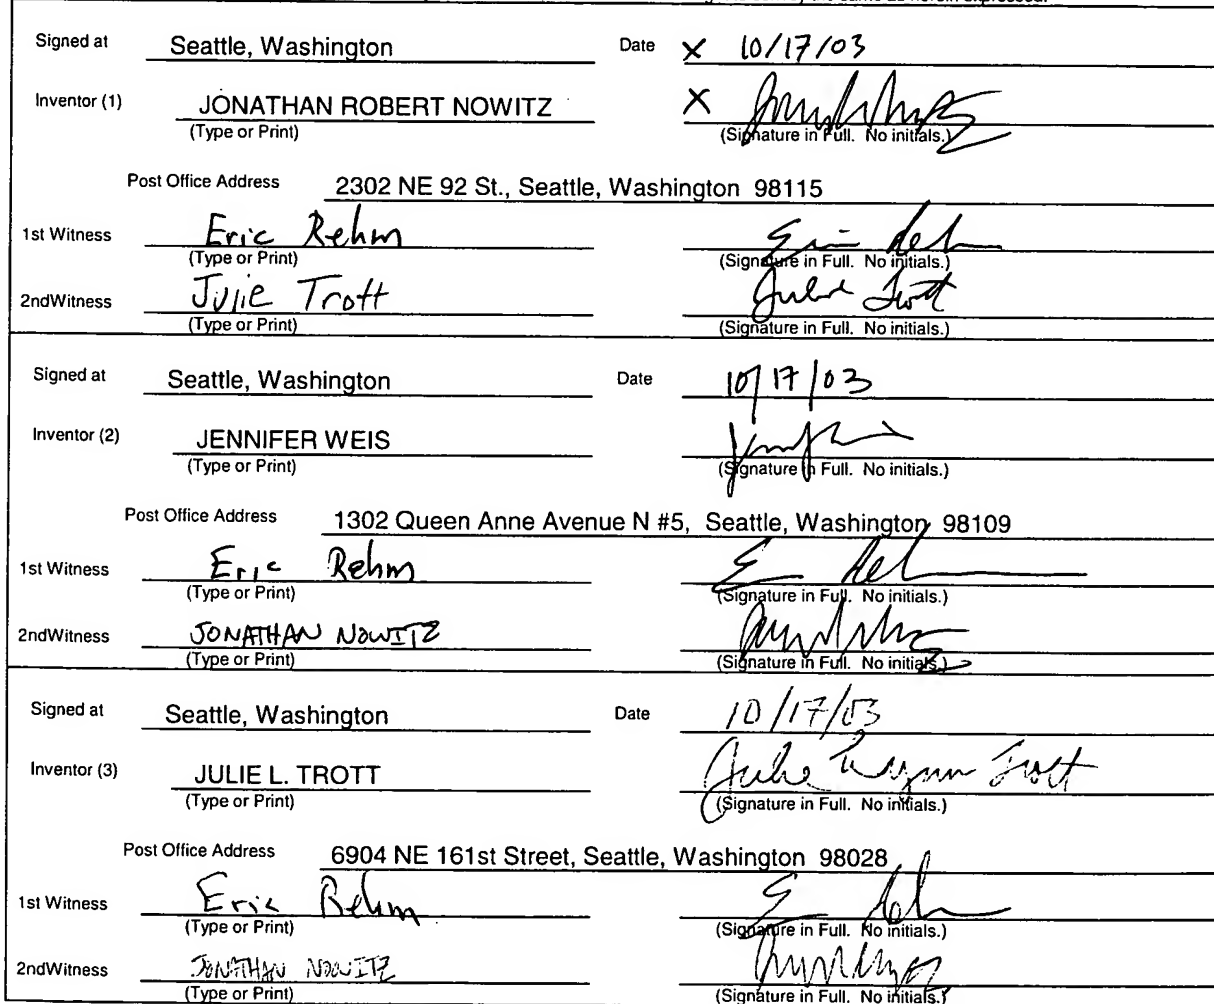 the same as herein expressed.
Signed at Seattle, Washington Date X 10/17/03
Inventor (1) JONATHAN ROBERT NOWITZ X
(Type or Print) (Signature in Full. No initials.)
Post Office Address 2302 NE 92 St., Seattle, Washington 98115
1st Witness Eric Rehm Eric Rehm
(Type or Print) (Signature in Full. No initials.)
2ndWitness Julie Trott Julie Trott
(Type or Print) (Signature in Full. No initials.)
Signed at Seattle, Washington Date 10/17/03
Inventor (2) JENNIFER WEIS
(Type or Print) (Signature in Full. No initials.)
Post Office Address 1302 Queen Anne Avenue N #5, Seattle, Washington 98109
1st Witness Eric Rehm
(Type or Print) (Signature in Full. No initials.)
2ndWitness JONATHAN NOWITZ
(Type or Print) (Signature in Full. No initials.)
Signed at Seattle, Washington Date 10/17/03
Inventor (3) JULIE L. TROTT Julie Lynn Trott
(Type or Print) (Signature in Full. No initials.)
Post Office Address 6904 NE 161st Street, Seattle, Washington 98028
1st Witness Eric Rehm
(Type or Print) (Signature in Full. No initials.)
2ndWitness JONATHAN NOWITZ
(Type or Print) (Signature in Full. No initials.)